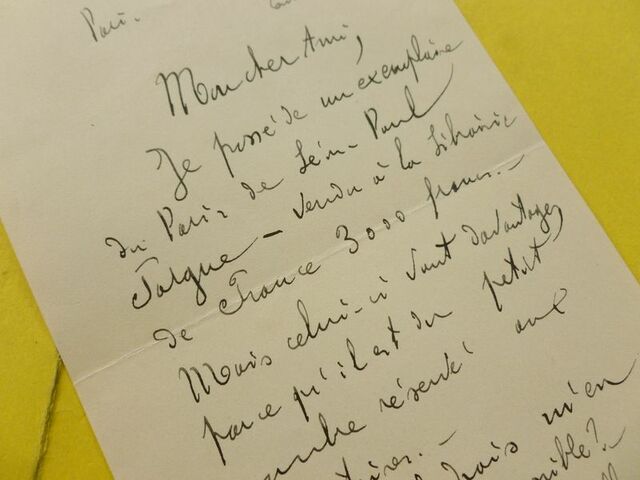 Paris.
Mon cher Ami,
Je possède un exemplaire
du Paris de Léon-Paul
Fargue – vendu à la librairie
de France 3000 francs. –
Mais celui-ci vaut davantage,
parce qu'il est du petit
nombre réservé aux
m'en